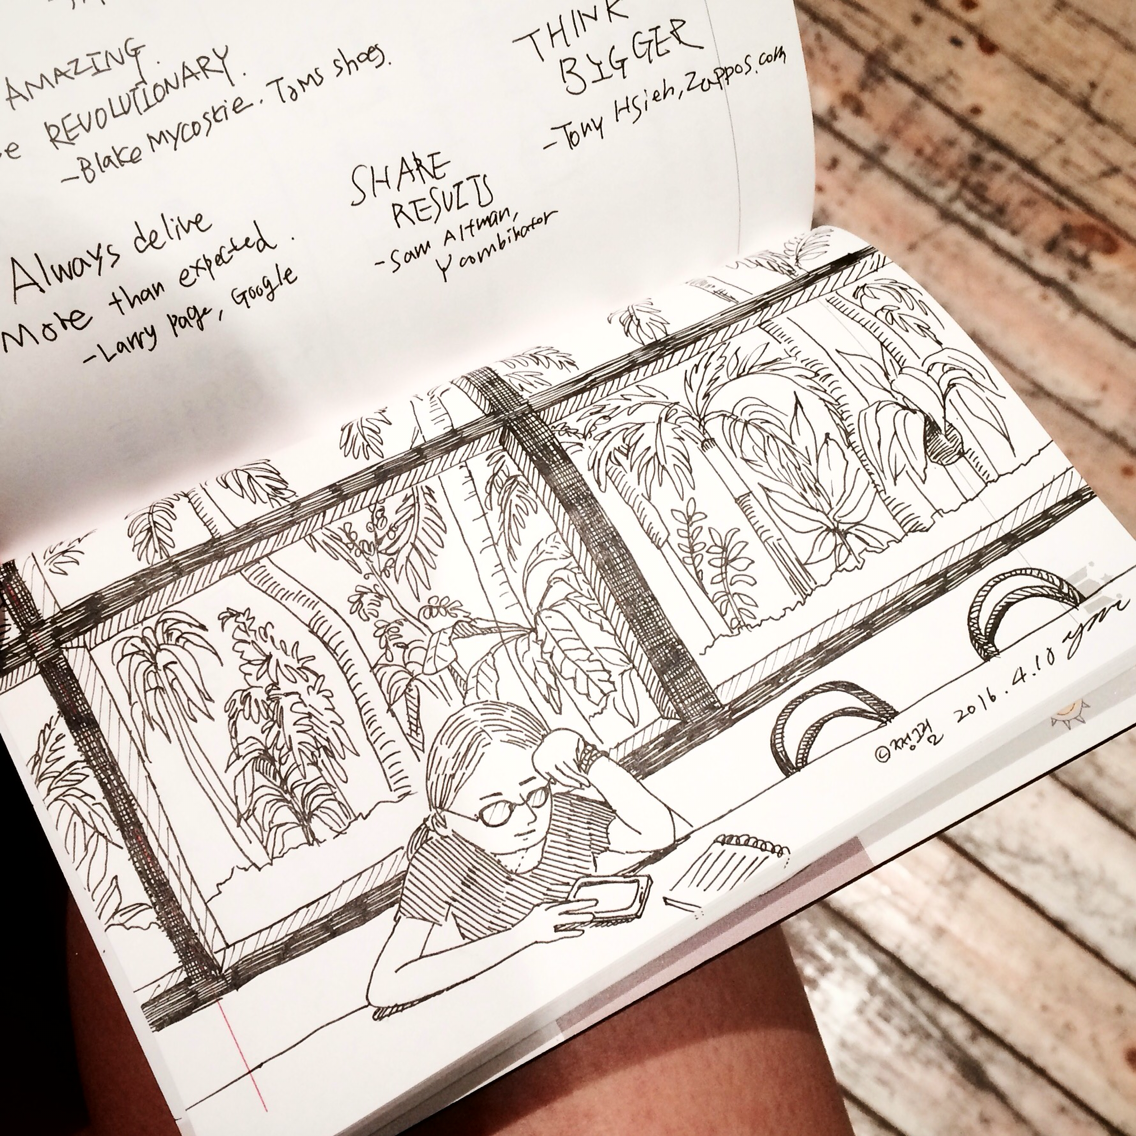 AMAZING.
e REVOLUTIONARY.
-Blake Mycoskie. Toms shoes.
THINK
BIGGER
-Tony Hsieh, Zappos.com
SHARE
RESULTS
-Sam Altman,
Y combinator
Always delive
More than expected.
-Larry page, Google
© 2016.4.10